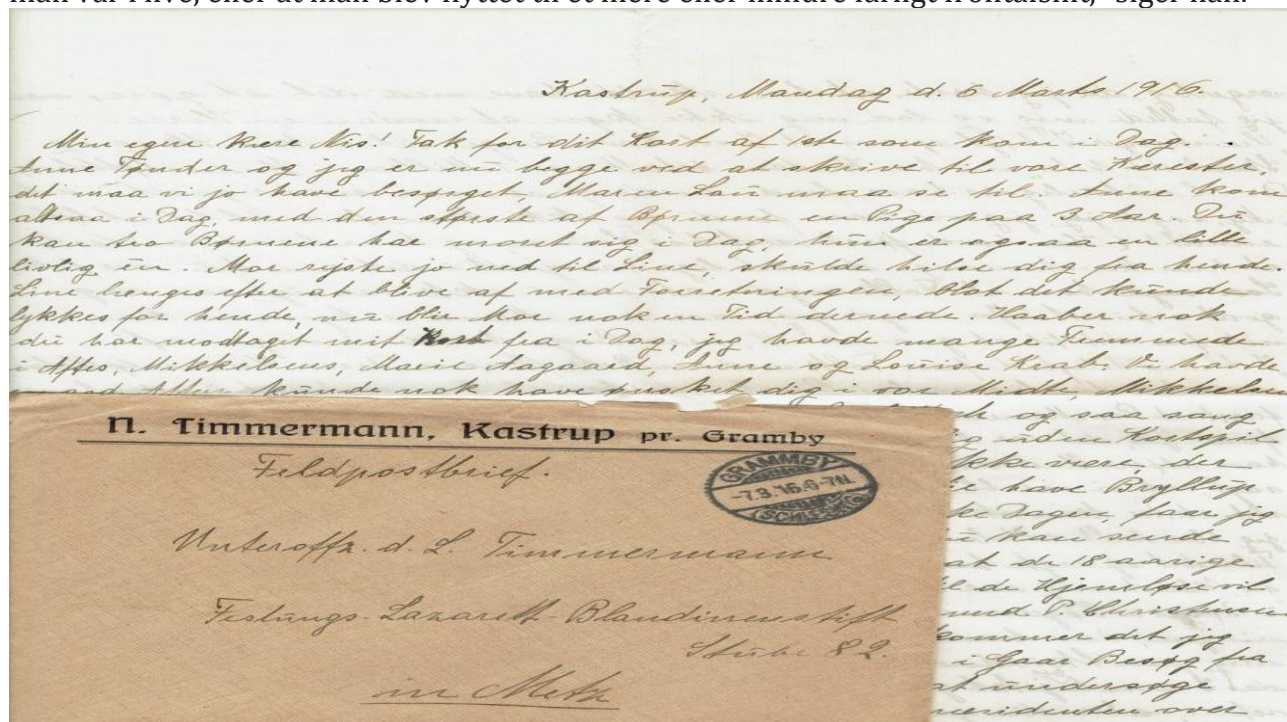 man var i live, eller at man blev flyttet til et mere eller mindre farligt frontafsnit," siger han.
Kastrup, Mandag d. 6 Marts 1916.
Min egen kære Nis! Tak for dit Kort af 1ste som kom i Dag.
Anne Tønder og jeg er nu begge ved at skrive til vore Kærester,
det maa vi jo have besørget, Maren Lau maa se til. Anne kom
altsaa i Dag, med den største af Børnene en Pige paa 3 Aar. Du
kan tro Børnene har moret sig i Dag, hun er ogsaa en lille
livlig én. Mor rejste jo ned til Line, skulde hilse dig fra hende.
Line længes efter at blive af med Forretningen, blot det kunde
lykkes for hende, nu bliv Mor nok en Tid dernede. Haaber nok
du har modtaget mit Kort fra i Dag, jeg havde mange Fremmede
i Aftes, Mikkelsens, Marie Aagaard, Anne og Louise Krab. Vi havde
kunde nok have ønsket dig i vor Midt, Mikkelsen
og saa sang
uden Kortspil
ikke være, der
have Bryllup
Dagen, faar jeg
kan sende
at de 18 aarige
de Hjemløse vil
P. Christensen
kommer det jeg
i Gaar Besøg fra
at undersøge
over
N. Timmermann, Kastrup pr. Gramby
Feldpostbrief.
GRAMMBY
-7.3.16.6-7N.
(SCHLESWIG)
Unteroffz. d. L. Timmermann
Festungs-Lazarett-Blandinenstift
Stube 82.
in Metz